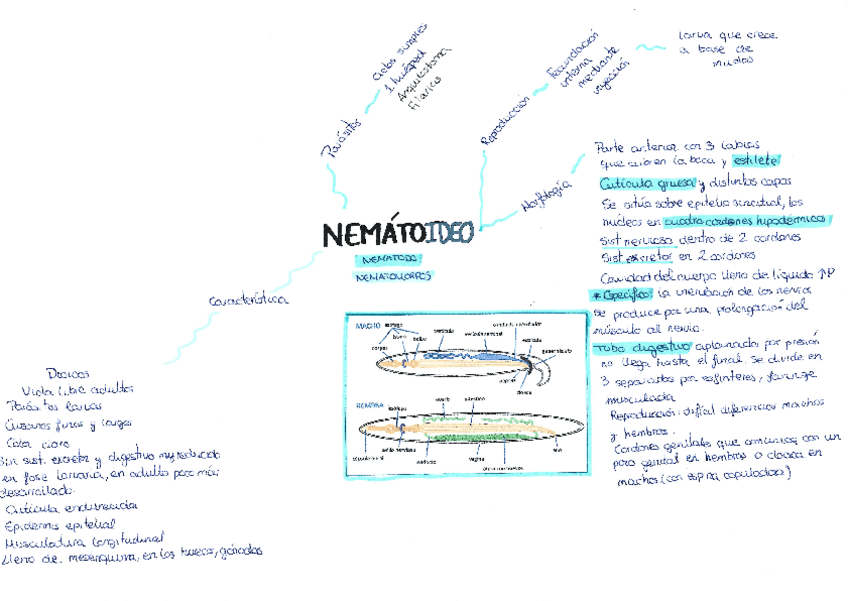 Parásitos
Ciclos simples
1 huésped
Anquilostoma
Filarias
Reproducción
Fecundación
interna
mediante
inyección
larva que crece
a base de
mudas
Morfología
Parte anterior con 3 labios
que cubren la boca y estilete
Cutícula gruesa y distintas capas
Se sitúa sobre epitelio sincitial, los
núcleos en cuatro cordones hipodérmicos
Sist nervioso dentro de 2 cordones
Sist excretor en 2 cordones
Cavidad del cuerpo lleno de líquido ↑P
* Específico: la inervación de los nervios
se produce por una prolongación del
músculo al nervio.
Tubo digestivo aplanado por presión
no llega hasta el final. Se divide en
3 separados por esfínteres, faringe
musculada
Reproducción: difícil diferenciar machos
y hembras.
Cordones genitales que comunican con un
poro genital en hembra o cloaca en
machos (con espina copuladora)
NEMÁTOIDEO
NEMATODO
NEMATOMORFOS
Característica
Dioicos
Vida libre adultos
Parásitos larvas
Gusanos finos y largos
Color claro
Sin sist. excretor y digestivo muy reducido
en fase larvaria, en adulto poco más
desarrollado.
Cutícula endurecida
Epidermis epitelial
Musculatura longitudinal
Lleno de mesénquima, en los huecos, gónadas
MACHO
HEMBRA